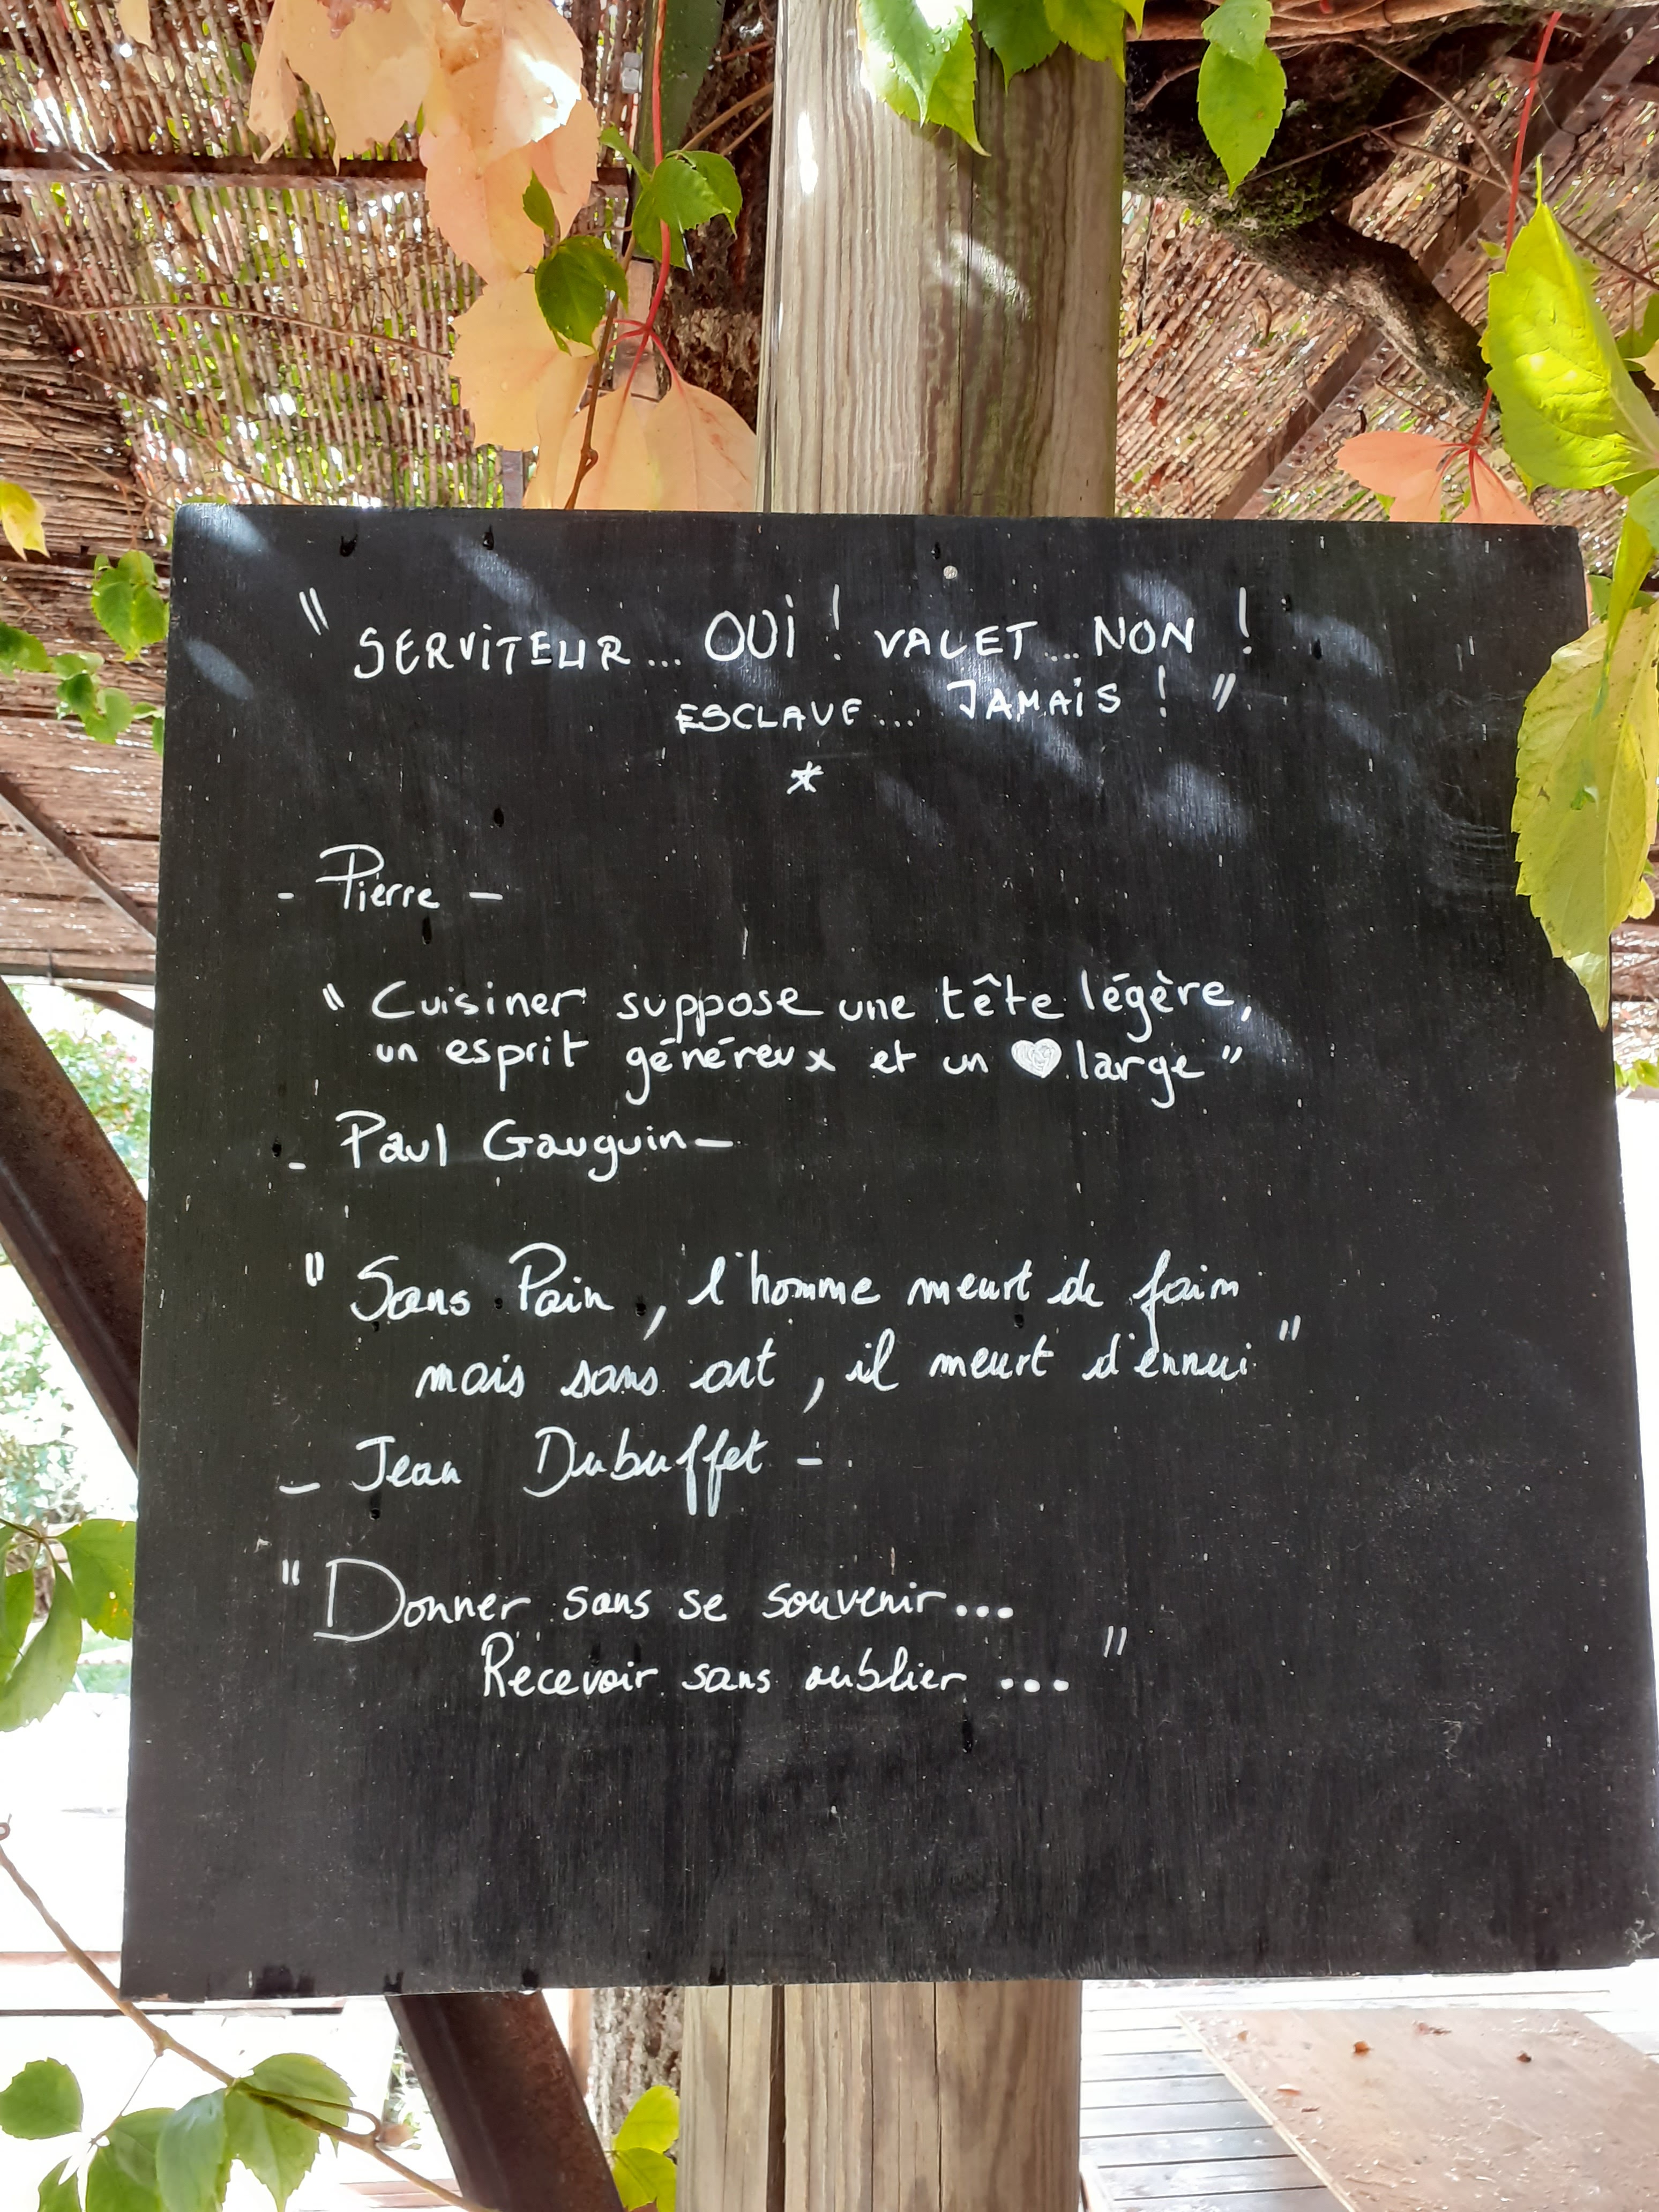 " SERViTEUR... OUi ! VALET... NON !
ESCLAVE... JAMAiS ! "
*
- Pierre -
" Cuisiner suppose une tête légère,
un esprit généreux et un ♥ large "
- Paul Gauguin -
" Sans Pain, l'homme meurt de faim
mais sans art, il meurt d'ennui "
- Jean Dubuffet -
" Donner sans se souvenir...
Recevoir sans oublier ... "